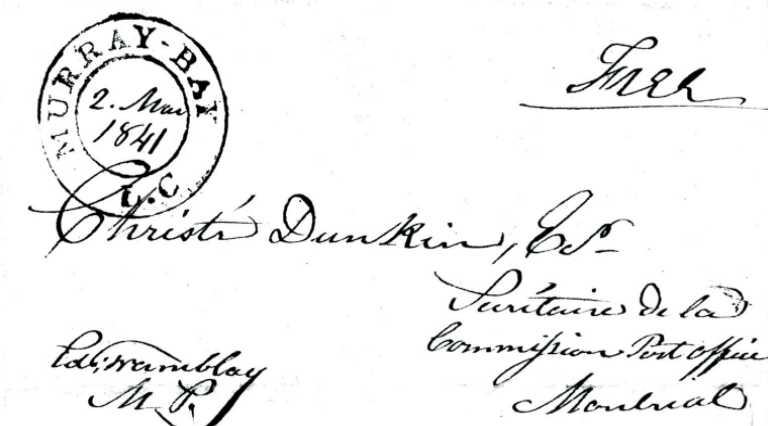 MURRAY-BAY
2. Mar
1841
L.C
Free
Christr Dunkin, Esr
Secrétaire de la
Commission Post office
Montreal
Ed: Tremblay
M. P.